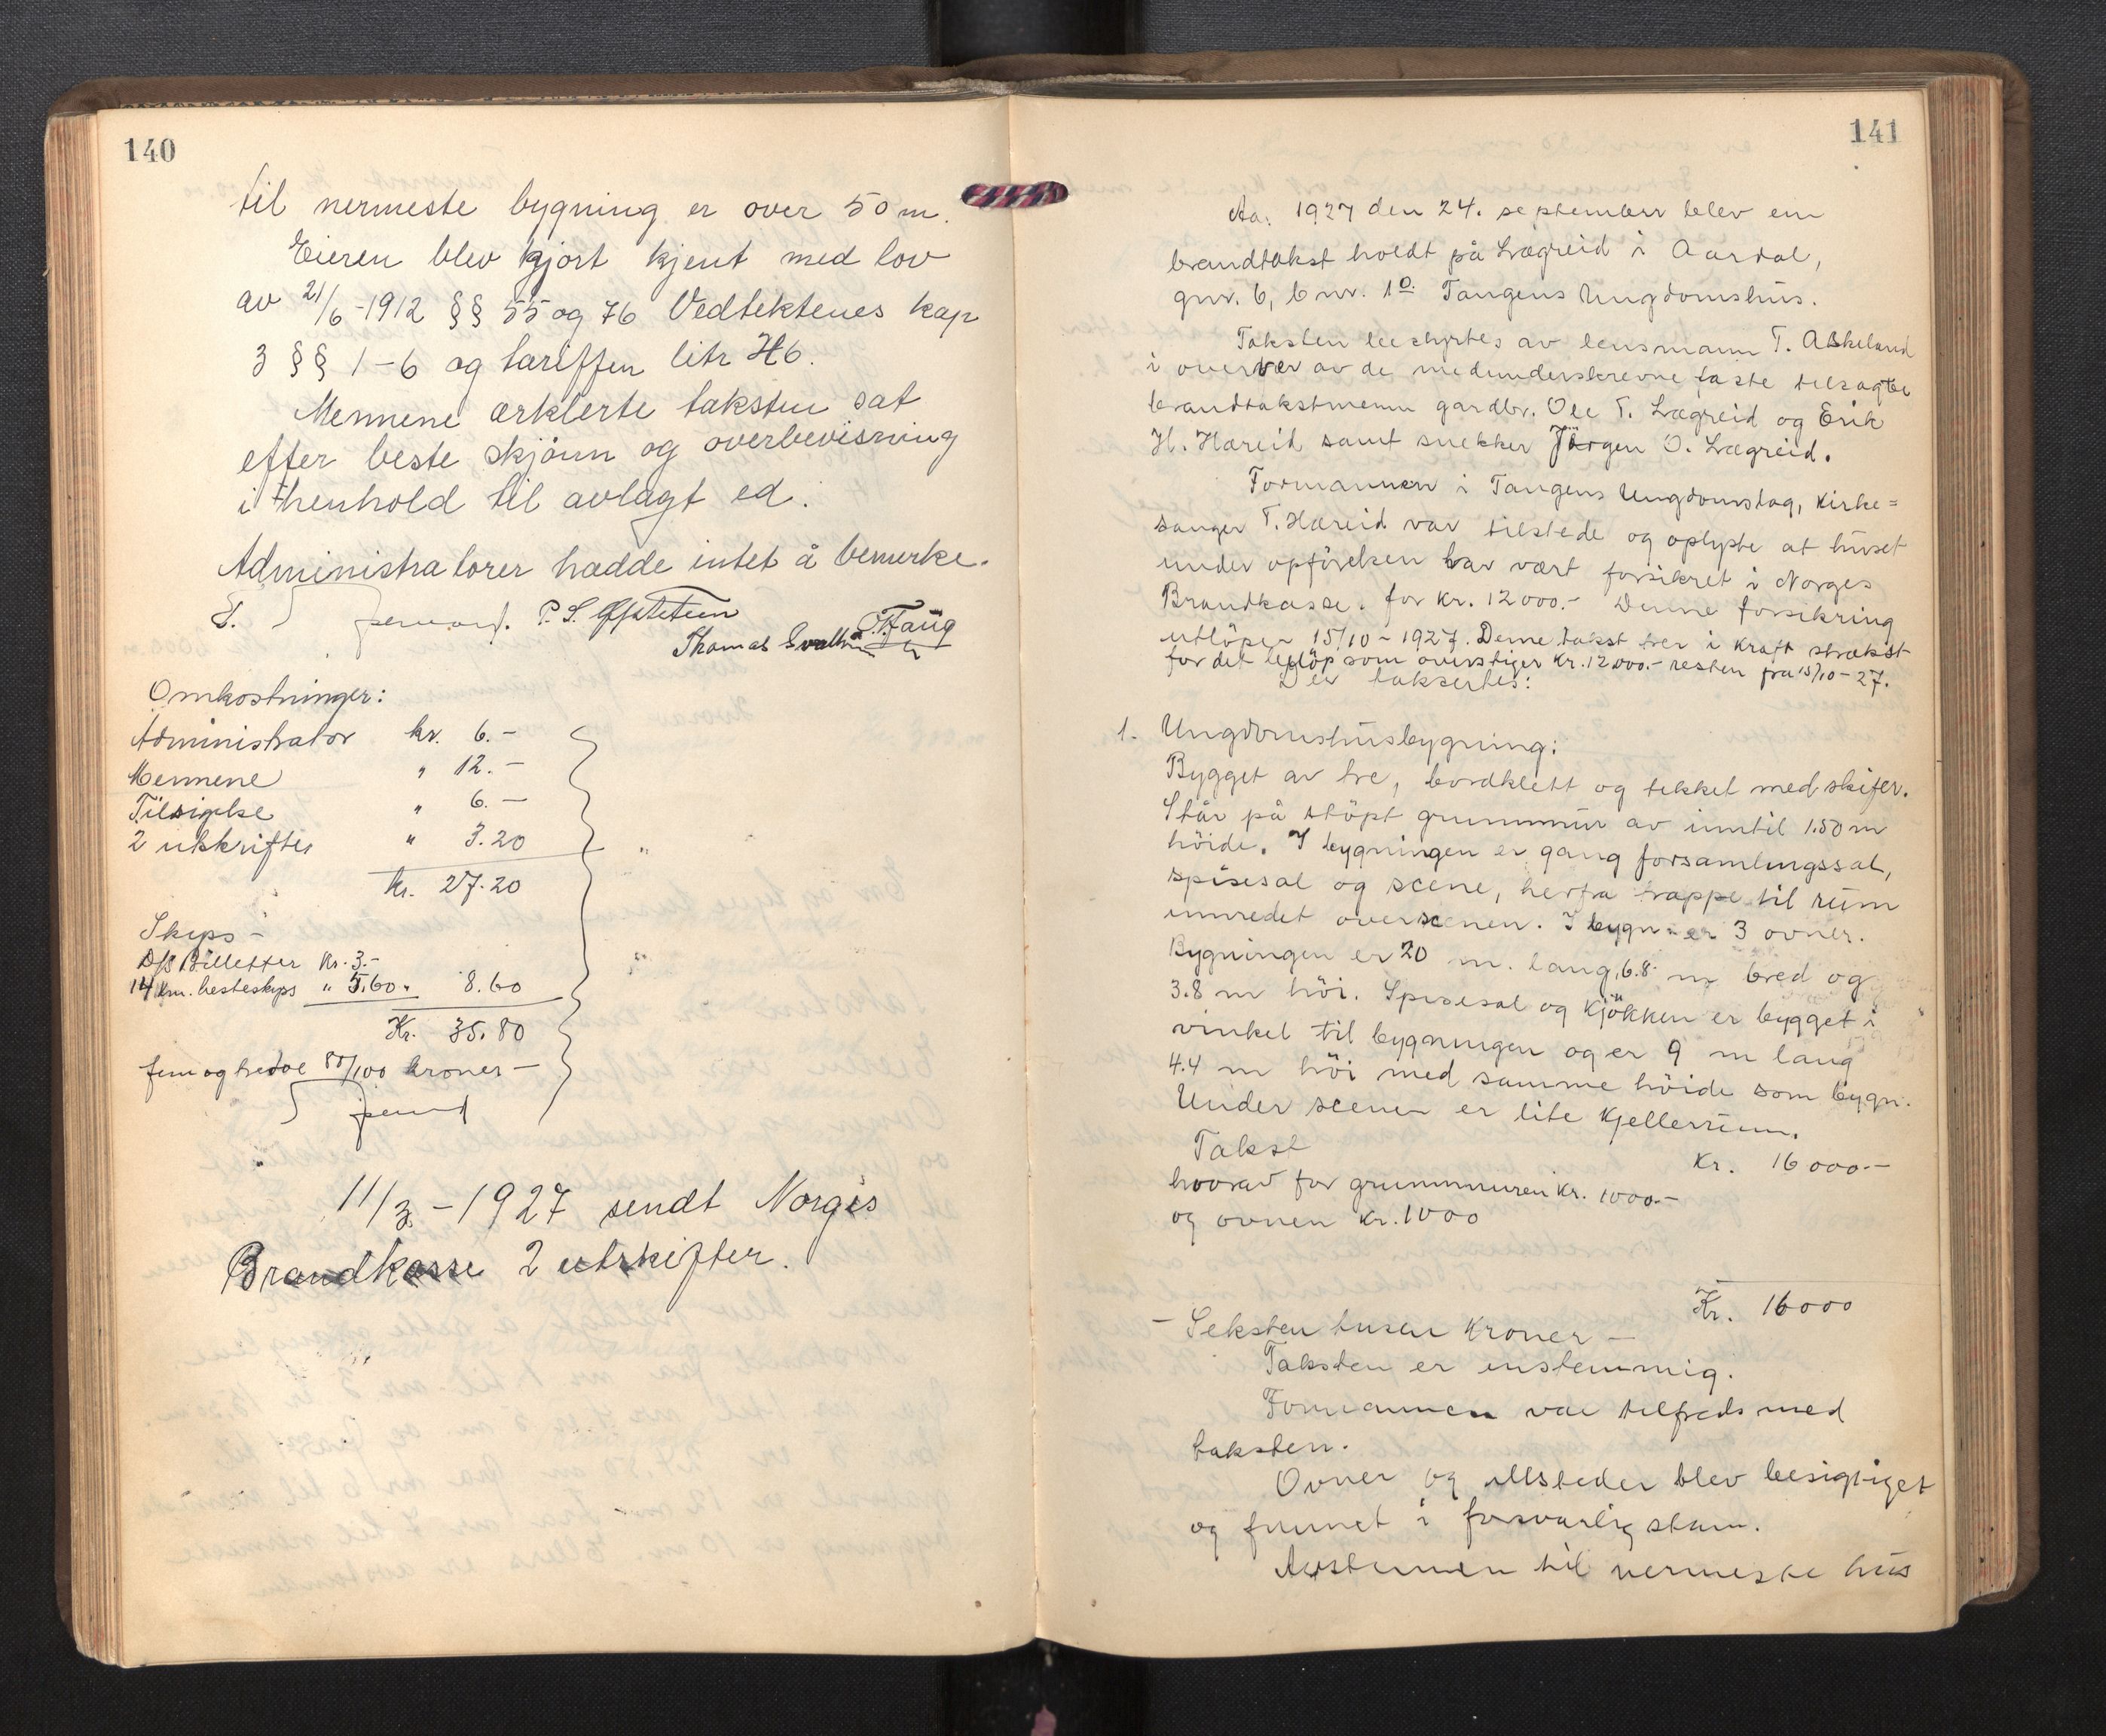 140
til nermeste bygning er over 50 m.
Eieren blev gjort kjent med lov
av 21/6-1912 §§ 55 og 76 Vedtektenes kap
3 §§ 1-6 og tariffen litr H6.
Mennene ærklerte taksten sat
efter beste skjönn og overbevisning
i henhold til avlagt ed.
Administratorer hadde intet å bemerke.
P. S. Ofstetun
Thomas
Omkostninger:
Administrator kr. 6.-
Mennene " 12.-
Tilsigelse " 6.-
2 utskrifter " 3.20
kr. 27.20
Skyps-
D/S Billetter Kr. 3.-
14 km. hesteskyps " 5.60. 8.60
Kr. 35.80
fem og tredve 80/100 kroner -
11/3-1927 sendt Norges
Brandkasse 2 utskrifter.
141
Aa. 1927 den 24. september blev en
brandtakst holdt på Lægreid i Aardal,
gnr. 6, bnr. 10 Tangens Ungdomshus.
Taksten bestyrtes av lensmann T. Askeland
i overvær av de medunderskrevne faste tilsagte
brandtakstmenn gardbr. Ole T. Lægreid og Erik
H. Hæreid samt snekker Jörgen O. Lægreid.
Formannen i Tangens Ungdomslag, Kirke=
sanger T. Hæreid var tilstede og oplyste at huset
under opförelsen har vært forsikret i Norges
Brandkasse. for Kr. 12000.- Denne forsikring
utlöper 15/10-1927. Denne takst trer i kraft strækst
for det belöp som overstiger Kr. 12000.- resten fra 15/10-27.
Der taksertes:
1. Ungdomshusbygning:
Bygget av tre, bordklett og tekket med skifer.
Står på stöpt grunnmur av inntil 1.50 m
höide. I bygningen er gang forsamlingssal,
spisesal og scene, herfra trappe til rum
innredet over scenen. I bygn. er 3 ovner.
Bygningen er 20 m. lang, 6.8 m bred og
3.8 m höi. Spisesal og Kjökken er bygget i
vinkel til bygningen og er 9 m lang
4.4 m höi med samme höide som bygn.
Under scenen er lite Kjellerrum.
Takst Kr. 16000.-
hvorav for grunnmuren Kr. 1000.-
og ovnen Kr. 1000
Kr. 16000
- Seksten tusen Kroner -
Taksten er enstemmig.
Formannen var tilfreds med
taksten.
Ovner og ildsteder blev besigtiget
og funnet i forsvarlig stann.
Avstannen til nermeste hus